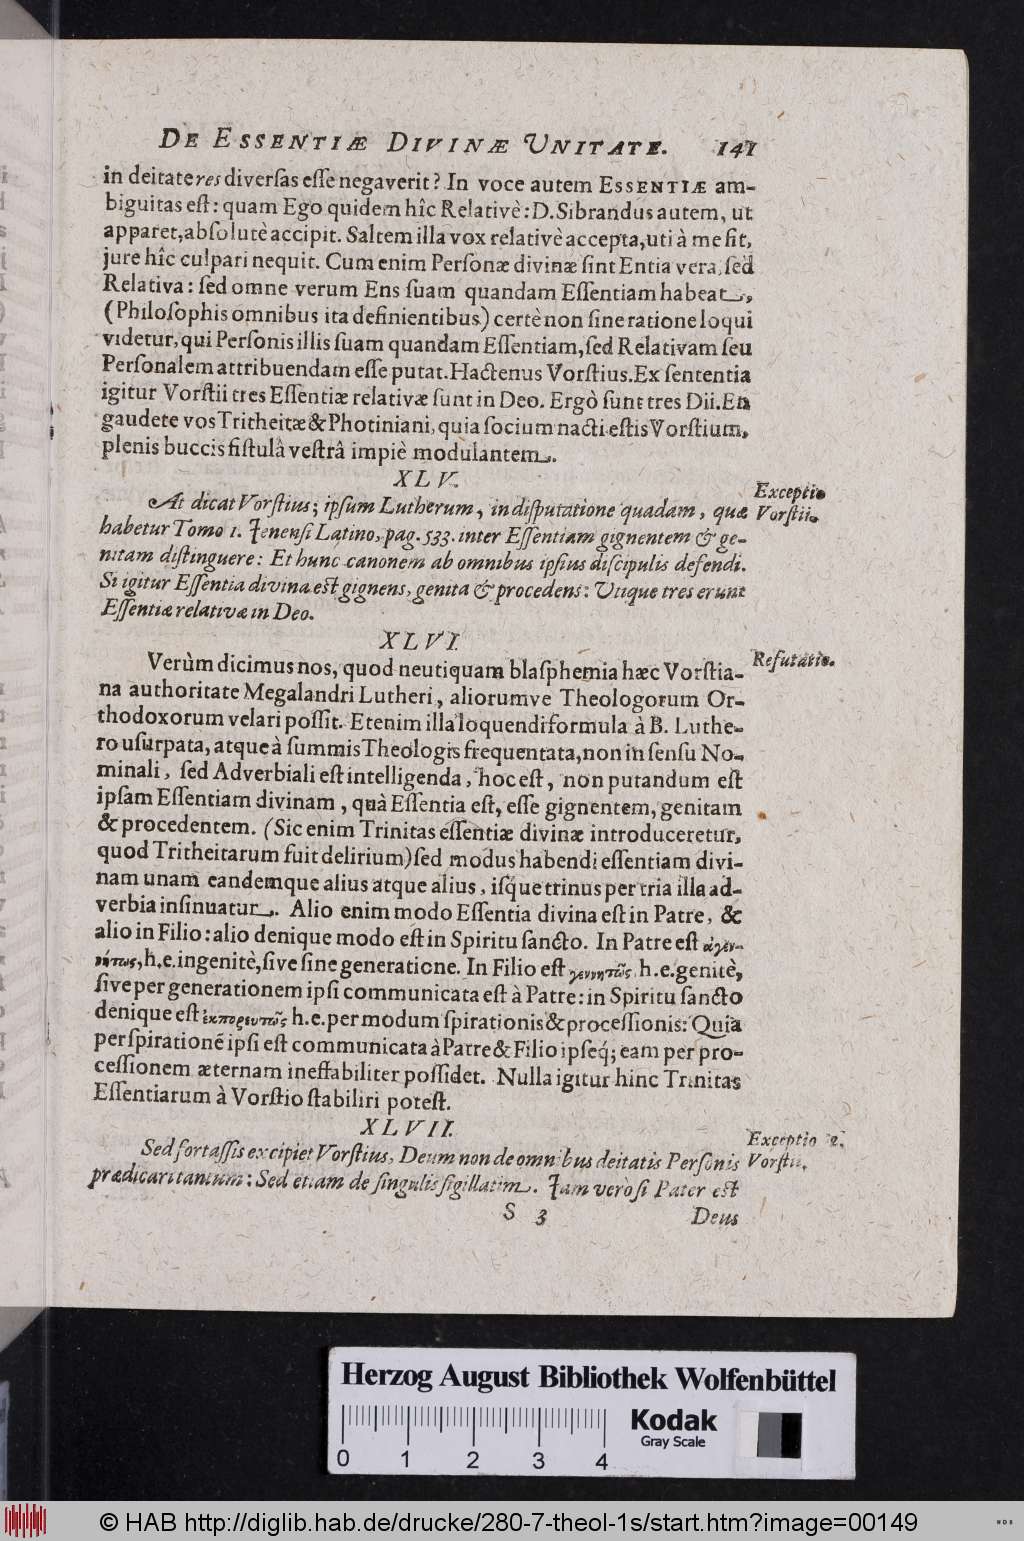 DE ESSENTIÆ DIVINÆ UNITATE. 141
in deitate res diverſas eſſe negaverit? In voce autem ESSENTIÆ am-
biguitas eſt: quam Ego quidem hîc Relativè: D. Sibrandus autem, ut
apparet, abſolutè accipit. Saltem illa vox relativè accepta, uti à me fit,
jure hîc culpari nequit. Cum enim Perſonæ divinæ ſint Entia vera, ſed
Relativa: ſed omne verum Ens ſuam quandam Eſſentiam habeat,
(Philoſophis omnibus ita definientibus) certè non ſine ratione loqui
videtur, qui Perſonis illis ſuam quandam Eſſentiam, ſed Relativam ſeu
Perſonalem attribuendam eſſe putat. Hactenus Vorſtius. Ex ſententia
igitur Vorſtii tres Eſſentiæ relativæ ſunt in Deo. Ergò ſunt tres Dii. En
gaudete vos Tritheitæ & Photiniani, quia ſocium nacti eſtis Vorſtium,
plenis buccis fiſtulâ veſtrâ impiè modulantem.
XLV.
At dicat Vorſtius; ipſum Lutherum, in diſputatione quadam, quæ
habetur Tomo 1. Jenenſi Latino, pag. 533. inter Eſſentiam gignentem & ge-
nitam diſtinguere: Et hunc canonem ab omnibus ipſius diſcipulis defendi.
Si igitur Eſſentia divina eſt gignens, genita & procedens: Utique tres erunt
Eſſentiæ relativæ in Deo.
Exceptio
Vorſtii.
XLVI.
Verùm dicimus nos, quod neutiquam blaſphemia hæc Vorſtia-
na authoritate Megalandri Lutheri, aliorumve Theologorum Or-
thodoxorum velari poſſit. Etenim illa loquendi formula à B. Luthe-
ro uſurpata, atque à ſummis Theologis frequentata, non in ſenſu No-
minali, ſed Adverbiali eſt intelligenda, hoc eſt, non putandum eſt
ipſam Eſſentiam divinam, quà Eſſentia eſt, eſſe gignentem, genitam
& procedentem. (Sic enim Trinitas eſſentiæ divinæ introduceretur,
quod Tritheitarum fuit delirium) ſed modus habendi eſſentiam divi-
nam unam eandemque alius atque alius, iſq́ue trinus per tria illa ad-
verbia inſinuatur. Alio enim modo Eſſentia divina eſt in Patre, &
alio in Filio: alio denique modo eſt in Spiritu ſancto. In Patre eſt ἀγεν-
νήτως, h.e. ingenitè, ſive ſine generatione. In Filio eſt γεννητῶς, h.e. genitè,
ſive per generationem ipſi communicata eſt à Patre: in Spiritu ſancto
denique eſt ἐκπορευτῶς h.e. per modum ſpirationis & proceſſionis: Quia
per ſpirationē ipſi eſt communicata à Patre & Filio ipſeq́; eam per pro-
ceſſionem æternam ineffabiliter poſſidet. Nulla igitur hinc Trinitas
Eſſentiarum à Vorſtio ſtabiliri poteſt.
Refutatio.
XLVII.
Sed fortaſſis excipiet Vorſtius, Deum non de omnibus deitatis Perſonis
prædicari tantum: Sed etiam de ſingulis ſigillatim. Jam vero ſi Pater eſt
Exceptio 2.
Vorſtii.
S 3 Deus
Herzog August Bibliothek Wolfenbüttel
Kodak
Gray Scale
0 1 2 3 4
© HAB http://diglib.hab.de/drucke/280-7-theol-1s/start.htm?image=00149